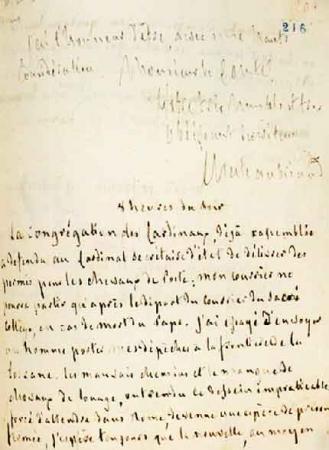 216
J'ai l'honneur d'être, avec une haute
Considération
Monsieur le Comte,
Votre très humble et très
obéissant serviteur
Chateaubriand
8 heures du soir
La congrégation des Cardinaux, déjà rassemblée
a defendu au Cardinal secrétaire d'état de délivrer des
permis pour les chevaux de poste; mon courrier ne
pourra partir qu'après le départ du courrier du Sacré
Collège, en cas de mort du Pape. J'ai essayé d'envoyer
un homme porter mes dépêches à la frontière de la
Toscane. les mauvais chemins et le manque de
chevaux de louage, ont rendu ce dessein impraticable
forcé d'attendre dans Rome, devenue une espèce de prison
fermée, j'espère toujours que la nouvelle, au moyen